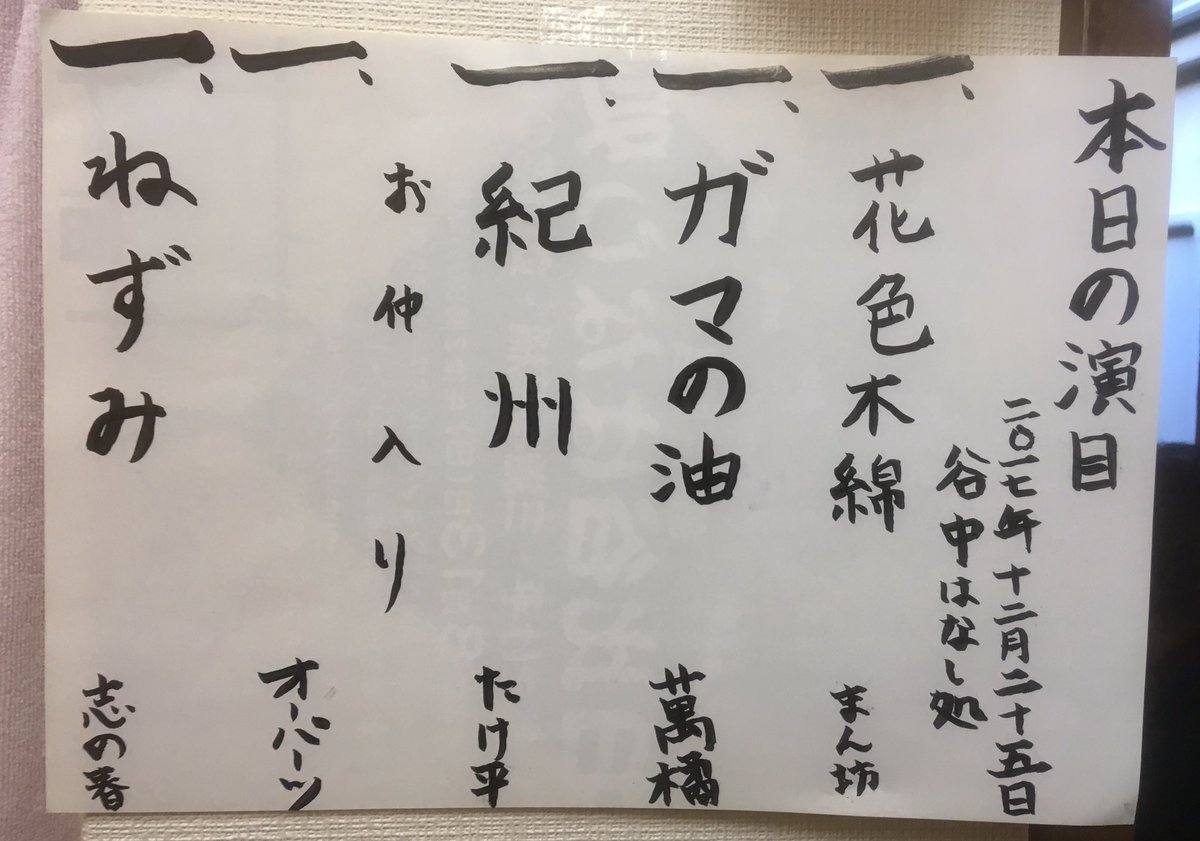 本日の演目
二〇一七年十二月二十五日
谷中はなし処
一、花色木綿 まん坊
一、ガマの油 萬橘
一、紀州 たけ平
お仲入り
一、 オーハーツ
一、ねずみ 志の春